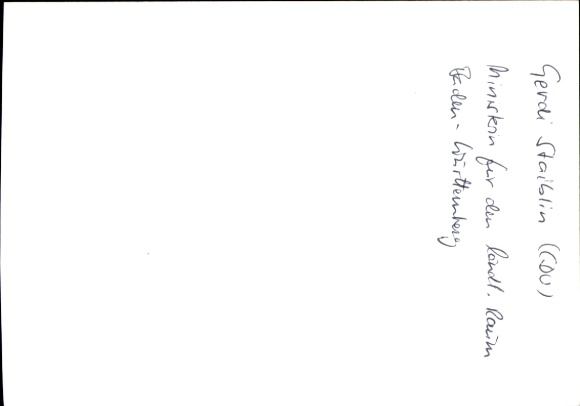 Gerdi Staiblin (CDU)
Ministerin für den ländl. Raum
Baden-Württemberg